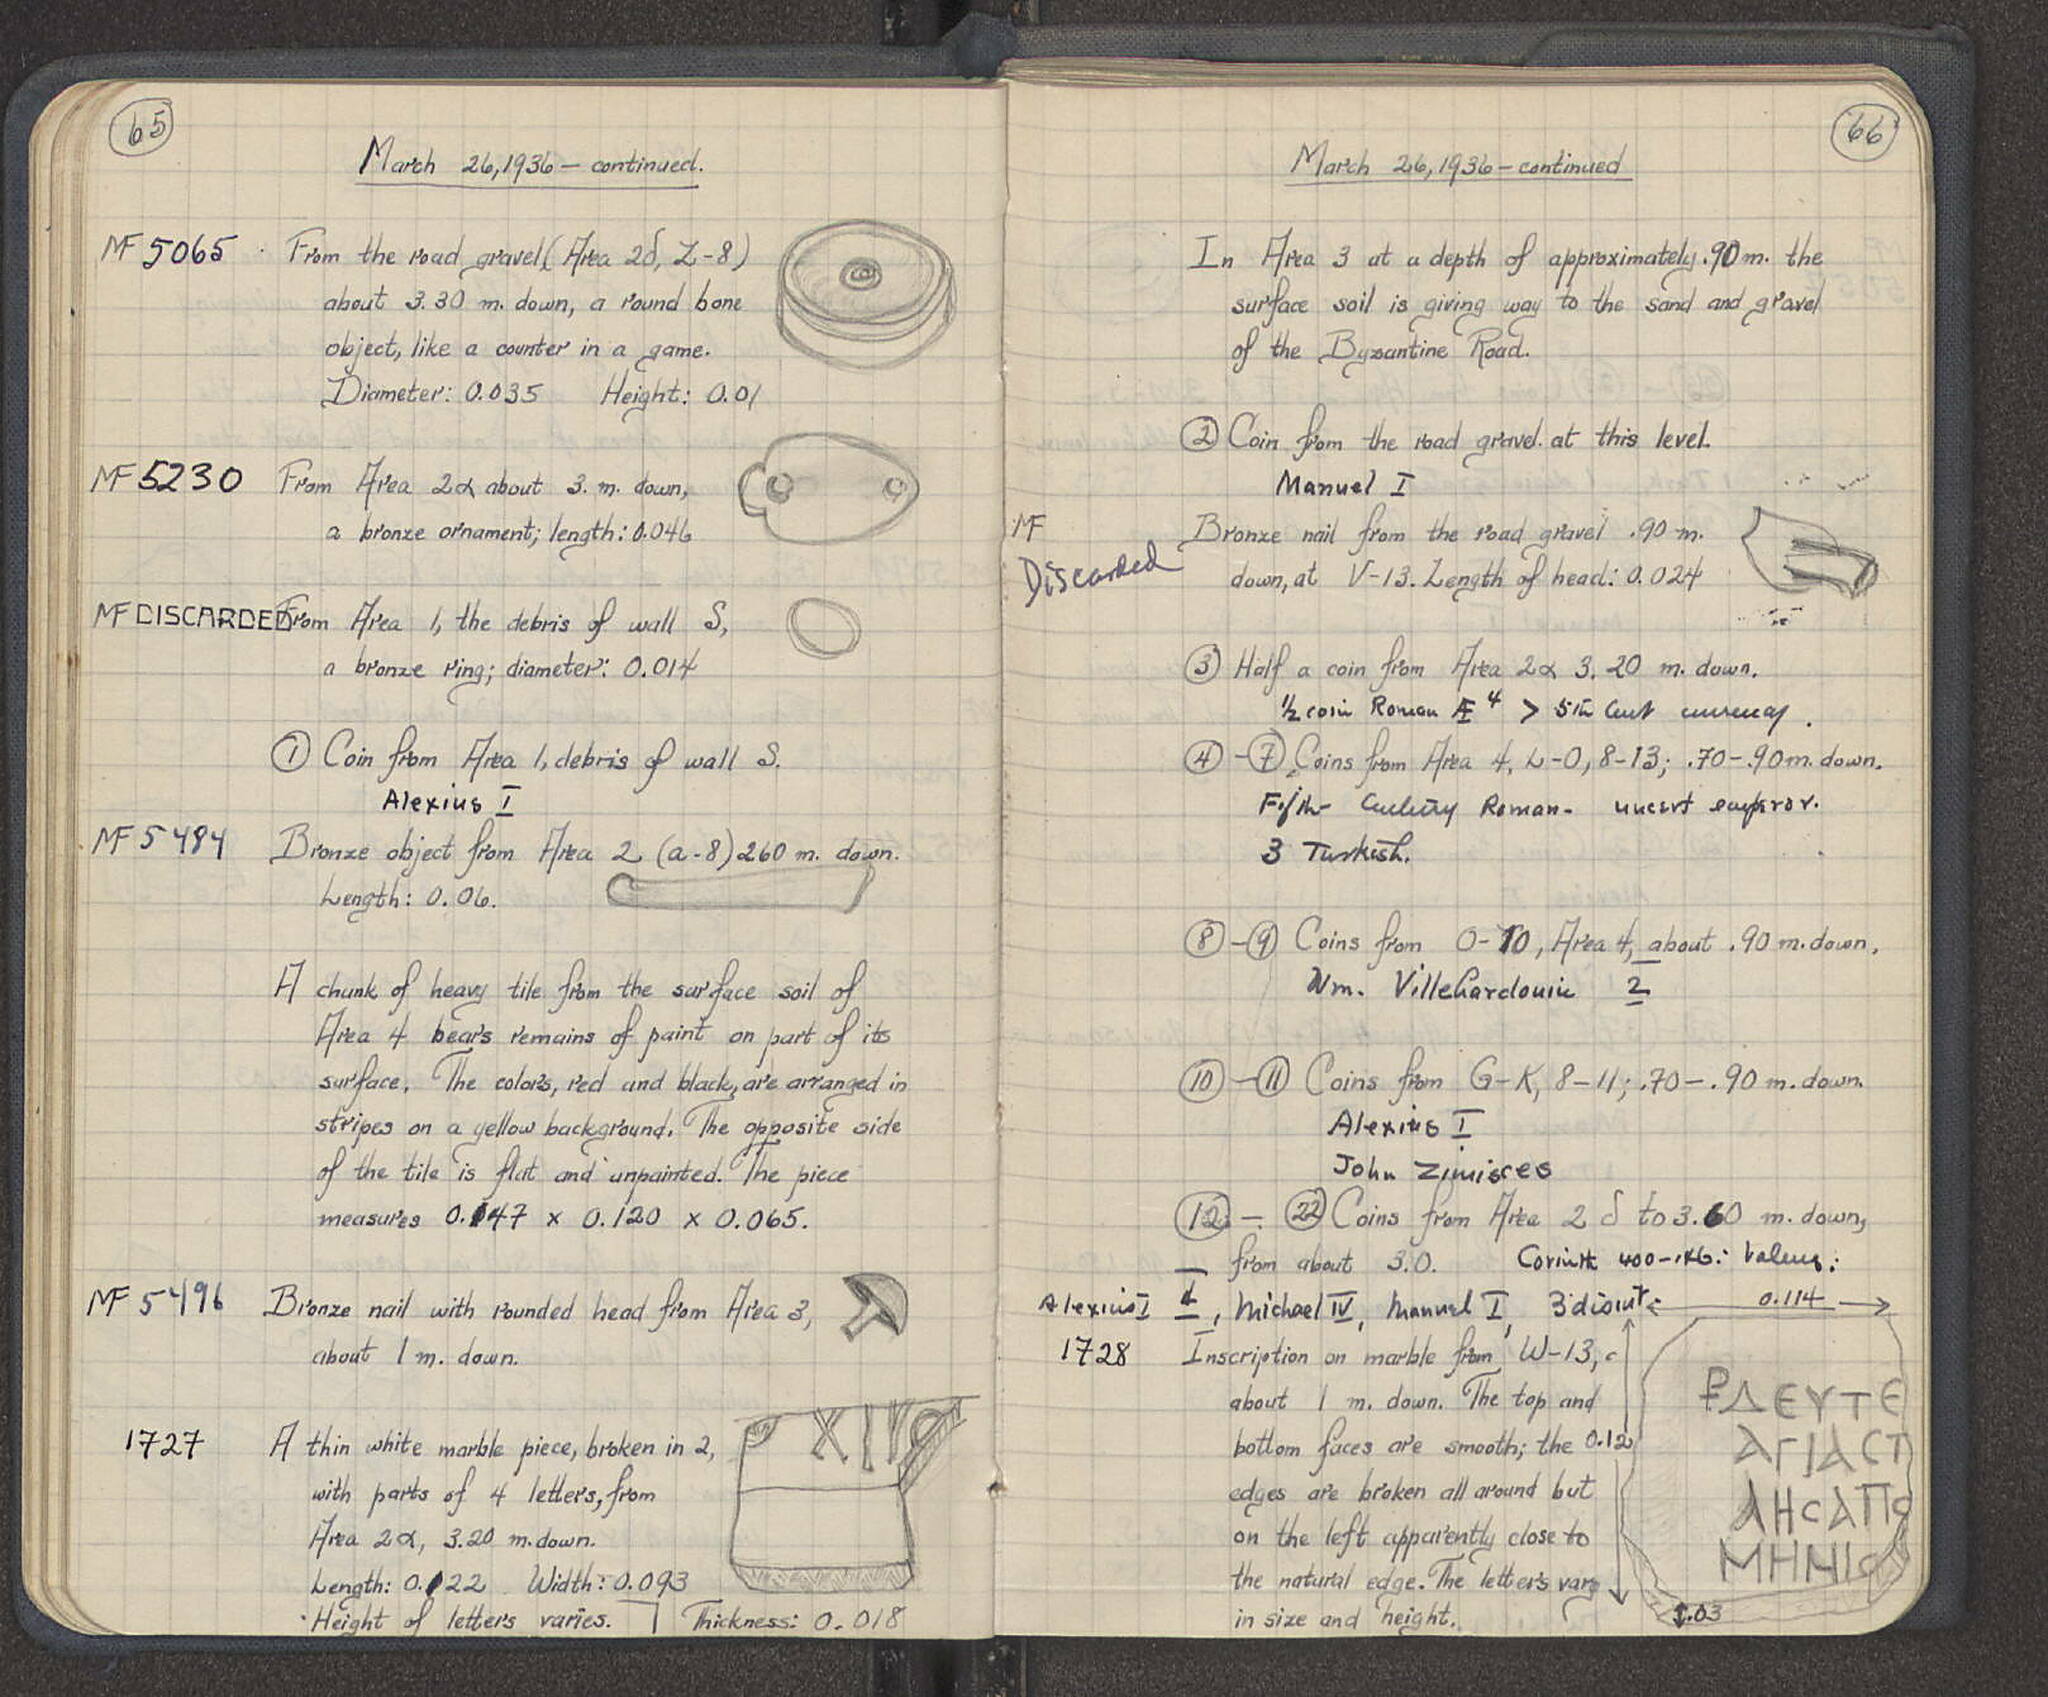 65
March 26, 1936 – continued.
MF 5065 From the road gravel (Area 2δ, Z-8)
about 3.30 m. down, a round bone
object, like a counter in a game.
Diameter: 0.035 Height: 0.01
MF 5230 From Area 2α about 3. m. down,
a bronze ornament; length: 0.046
MF DISCARDED From Area 1, the debris of wall S,
a bronze ring; diameter: 0.014
① Coin from Area 1, debris of wall S.
Alexius I
MF 5484 Bronze object from Area 2 (a-8) 260 m. down.
Length: 0.06.
A chunk of heavy tile from the surface soil of
Area 4 bears remains of paint on part of its
surface. The colors, red and black, are arranged in
stripes on a yellow background. The opposite side
of the tile is flat and unpainted. The piece
measures 0.147 x 0.120 x 0.065.
MF 5496 Bronze nail with rounded head from Area 3,
about 1 m. down.
1727 A thin white marble piece, broken in 2,
with parts of 4 letters, from
Area 2α, 3.20 m. down.
Length: 0.122 Width: 0.093
Height of letters varies. Thickness: 0.018
66
March 26, 1936 – continued
In Area 3 at a depth of approximately .90 m. the
surface soil is giving way to the sand and gravel
of the Byzantine Road.
② Coin from the road gravel at this level.
Manuel I
MF Bronze nail from the road gravel .90 m.
Discarded down, at V-13. Length of head: 0.024
③ Half a coin from Area 2α 3.20 m. down.
½ coin Roman Æ 4 > 5th Cent currency.
④-⑦ Coins from Area 4, L-O, 8-13; .70-.90 m. down.
Fifth Century Roman - uncert emperor.
3 Turkish.
⑧-⑨ Coins from O-10, Area 4, about .90 m. down.
Wm. Villehardouin 2
⑩-⑪ Coins from G-K, 8-11; .70-.90 m. down.
Alexius I
John Zimisces
⑫-㉒ Coins from Area 2 δ to 3.60 m. down,
from about 3.0. Corinth 400-146: Valens:
Alexius I, Michael IV, Manuel I, 3 disint.
0.114
1728 Inscription on marble from W-13,
about 1 m. down. The top and
bottom faces are smooth; the
edges are broken all around but
on the left apparently close to
the natural edge. The letters vary
in size and height.
0.12
ΔΕΥΤΕ
ΑΓΙΑCΤ
ΛΗCΑΠΟ
ΜΗΝΙ
.03